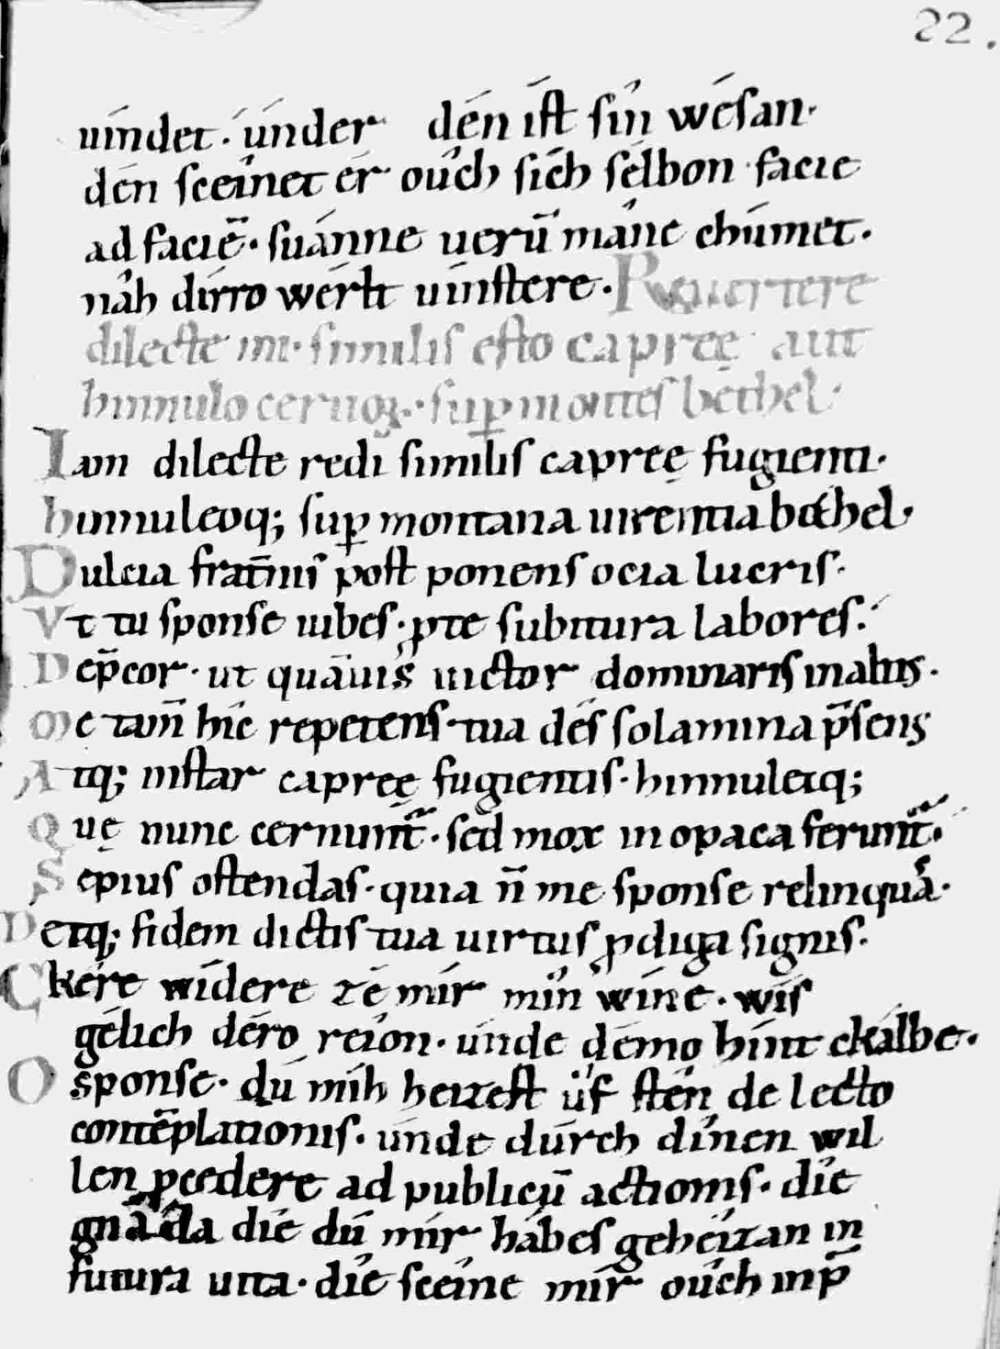 22.
uíndet. únder dén íſt ſín wéſan.
dén ſceínet ér oúch ſích ſélbon facie
ad faciē. ſuánne uerū máne chúmet.
náh dírro wérlt uínſtere. Reuertere
dilecte mi. ſimilis eſto capreę aut
hinnulo ceruoꝝ. ſuꝑ montes bethel.
Iam dilecte redi ſimiliſ capreę fugienti.
hinnuleoq; ſuꝑ montana uirentia bethel.
Dulcia fraĩniſ poſt ponenſ ocia lucriſ.
Vt tu ſponſe iubeſ. ꝑte ſubitura laboreſ.
Dep̄cor. ut quāuiſ uictor dominariſ in altiſ.
Me tam̄ híc repetenſ tua déſ ſolamina p̄ſenſ
Atq; inſtar capreę fugientiſ. hinnuleiq;
Quę nunc cernunt᷑. ſed mox in opaca ferunt᷑.
Sepiuſ oſtendaſ. quia n̄ me ſponſe relinquaſ.
Detq; fidem dictiſ tua uirtuſ ꝓdiga ſigniſ.
Ckére wídere zé mír mín wíne. wíſ
gélich déro réion. únde démo hínt ckálbe.
O ſponſe. dú míh heizeſt úf ſtén de lecto
contēplationiſ. únde dúrch dínen wil
len ꝓcedere ad publicū actioniſ. díe
gnâda díe dú mír hábeſ geheízan in
futura uita. díe ſceíne mír oúch inp̄